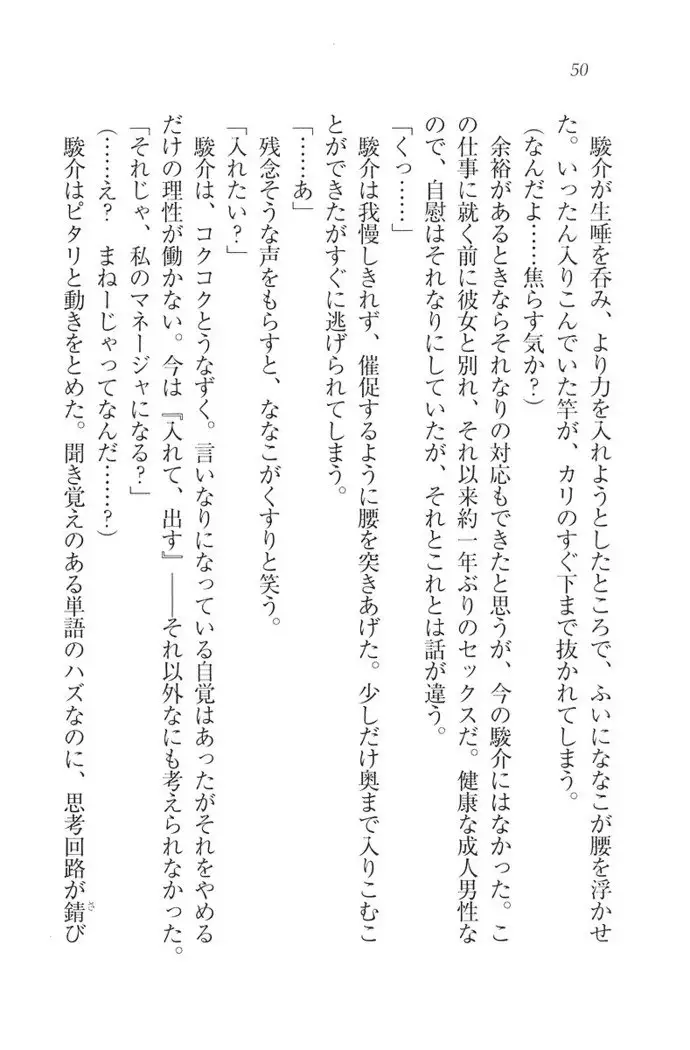 50
駿介が生唾を呑み、より力を入れようとしたところで、ふいにななこが腰を浮かせ
た。いったん入りこんでいた竿が、カリのすぐ下まで抜かれてしまう。
(なんだよ……焦らす気か?)
余裕があるときならそれなりの対応もできたと思うが、今の駿介にはなかった。こ
の仕事に就く前に彼女と別れ、それ以来約一年ぶりのセックスだ。健康な成人男性な
ので、自慰はそれなりにしていたが、それとこれとは話が違う。
「くっ……」
駿介は我慢しきれず、催促するように腰を突きあげた。少しだけ奥まで入りこむこ
とができたがすぐに逃げられてしまう。
「……あ」
残念そうな声をもらすと、ななこがくすりと笑う。
「入れたい?」
駿介は、コクコクとうなずく。言いなりになっている自覚はあったがそれをやめる
だけの理性が働かない。今は『入れて、出す』――それ以外なにも考えられなかった。
「それじゃ、私のマネージャになる?」
(……え? まねーじゃってなんだ……?)
駿介はピタリと動きをとめた。聞き覚えのある単語のハズなのに、思考回路が錆び